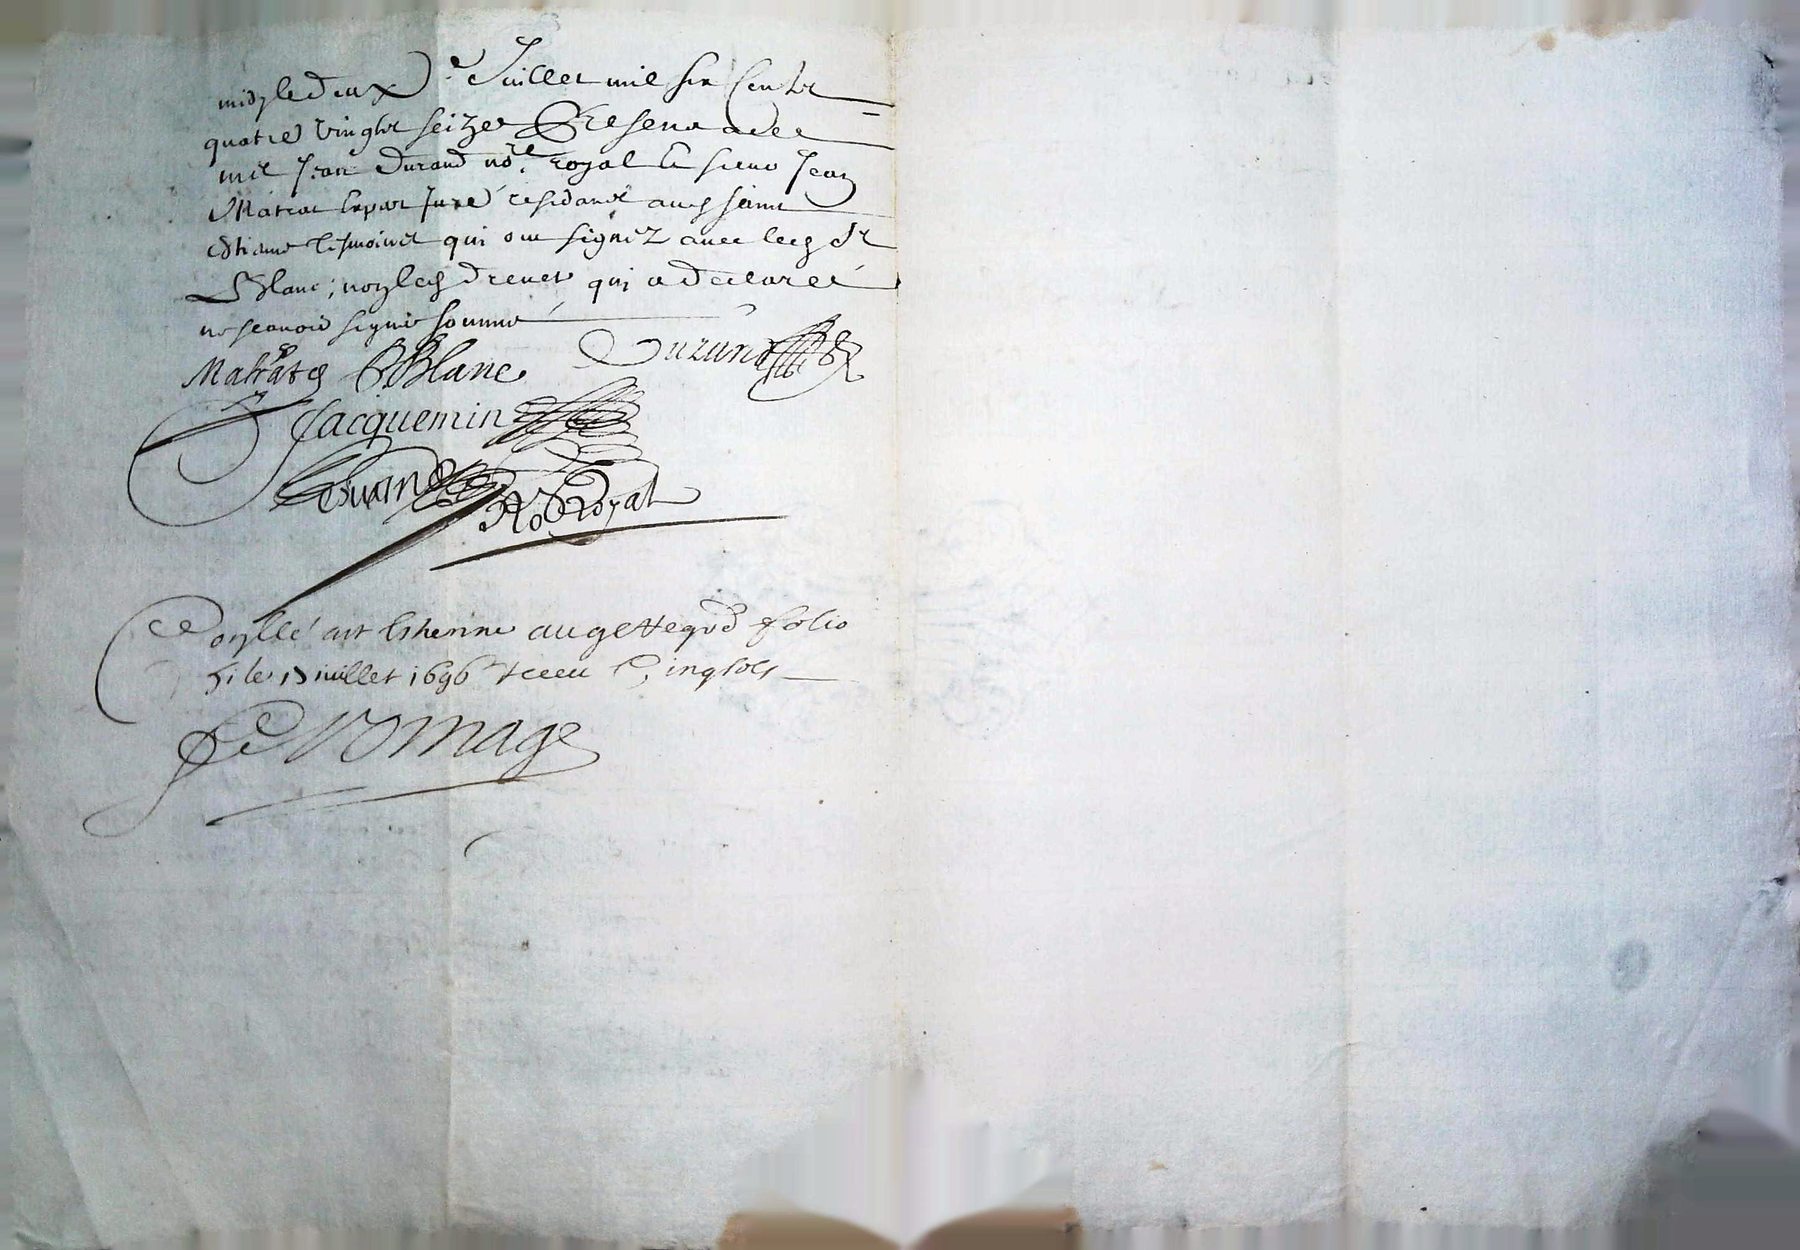 midy le deuxe Juillet mil six Centz
quatre vingtz seize Presens a
me Jean Durand no.re royal le sieur Jean
Matrat juré residant aud saint
Estienne tesmoines qui ont signez avec led Sr
Blanc, non led drevet qui a declaree
ne scavoir signer somme
Matrat Blanc Durand
Jacquemin
No.re Royal
Conllé a st Estienne au folio
51 le 13 juillet 1696 receu Cinq sols
Fromage